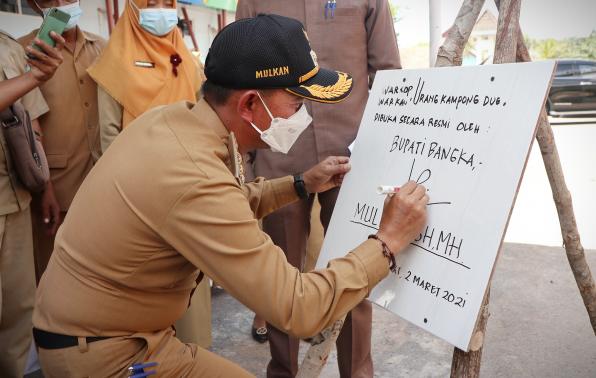 MULKAN
WARKOP
WARKAN, URANG KAMPONG DUG.
DIBUKA SECARA RESMI OLEH :
BUPATI BANGKA,-
MUL SH.MH.
2 MARET 2021